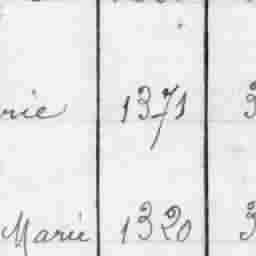 rie 1371 3
Marie 1320 3